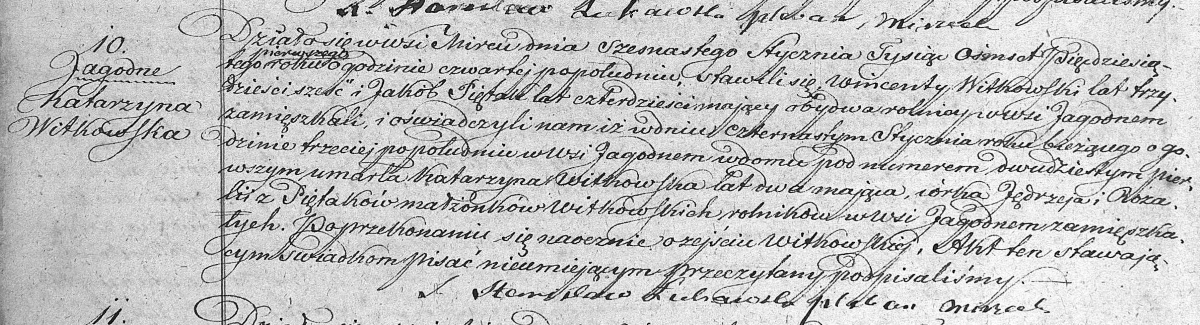 X. Stanisław Łukawski pleban Mirzec
10.
Jagodne
Katarzyna
Witkowska
Działo się w wsi Mircu dnia szesnastego Stycznia Tysiąc Ośmset Pięćdziesią-
pierwszego
tego roku o godzinie czwartej popołudniu, stawili się, Wincenty Witkowski lat trzy-
dzieści sześć i Jakób Piętak lat czterdzieści mający obydwa rolnicy w wsi Jagodnem
zamięszkali, i oświadczyli nam iż w dniu czternastym Stycznia roku bieżącego o go-
dzinie trzeciej popołudniu w wsi Jagodnem w domu pod numerem dwudziestym pier-
wszym umarła Katarzyna Witkowska lat dwa mająca, córka Jędrzeja i Roza-
lii z Piętaków małżonków Witkowskich, rolników w wsi Jagodnem zamięszka-
łych. Po przekonaniu się naocznie o zejściu Witkowskiej, Akt ten stawają-
cym świadkom pisać nieumiejącym przeczytany podpisaliśmy.
X Stanisław Łukawski pleban Mirzec
11.